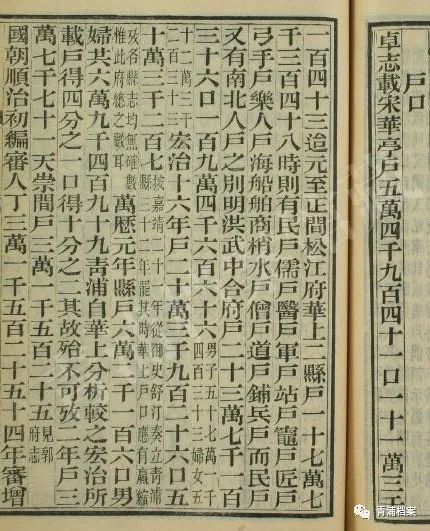 戶口
卓志載宋華亭戶五萬四千九百四十一口一十一萬三千
一百四十三迨元至正間松江府華上二縣戶一十七萬七
千三百四十八時則有民戶儒戶醫戶軍戶站戶竈戶匠戶
弓手戶樂人戶海船舶商梢水戶僧戶道戶鋪兵戶而民戶
又有南北人戶之別明洪武中合府戶二十三萬七千一百
三十六口一百九萬四千六百六十六男子五十七萬千四百三十三婦女五
十二萬三千二百三十三宏治十六年戶二十萬三千九百二十六口五
十萬三千二百六按嘉靖二十年從御史舒汀奏立青浦縣三十二年罷其時華上戶口應有贏縮
攷各縣志均無確數惟此府總之數耳萬歷元年縣戶六萬千一百六口男
婦共六萬九千四百九十九青浦自華上分析較之宏治所
載戶得四分之一口得十分之二其故殆不可攷二年戶三
萬七千七十一天崇間戶三萬一千五百二十五見郭府志
國朝順治初編審人丁三萬一千五百二十五十四年審增
青浦档案